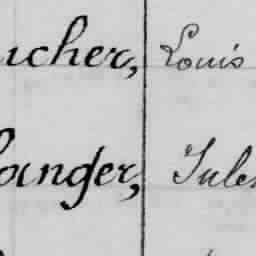 ucher, Louis
langer, Jules